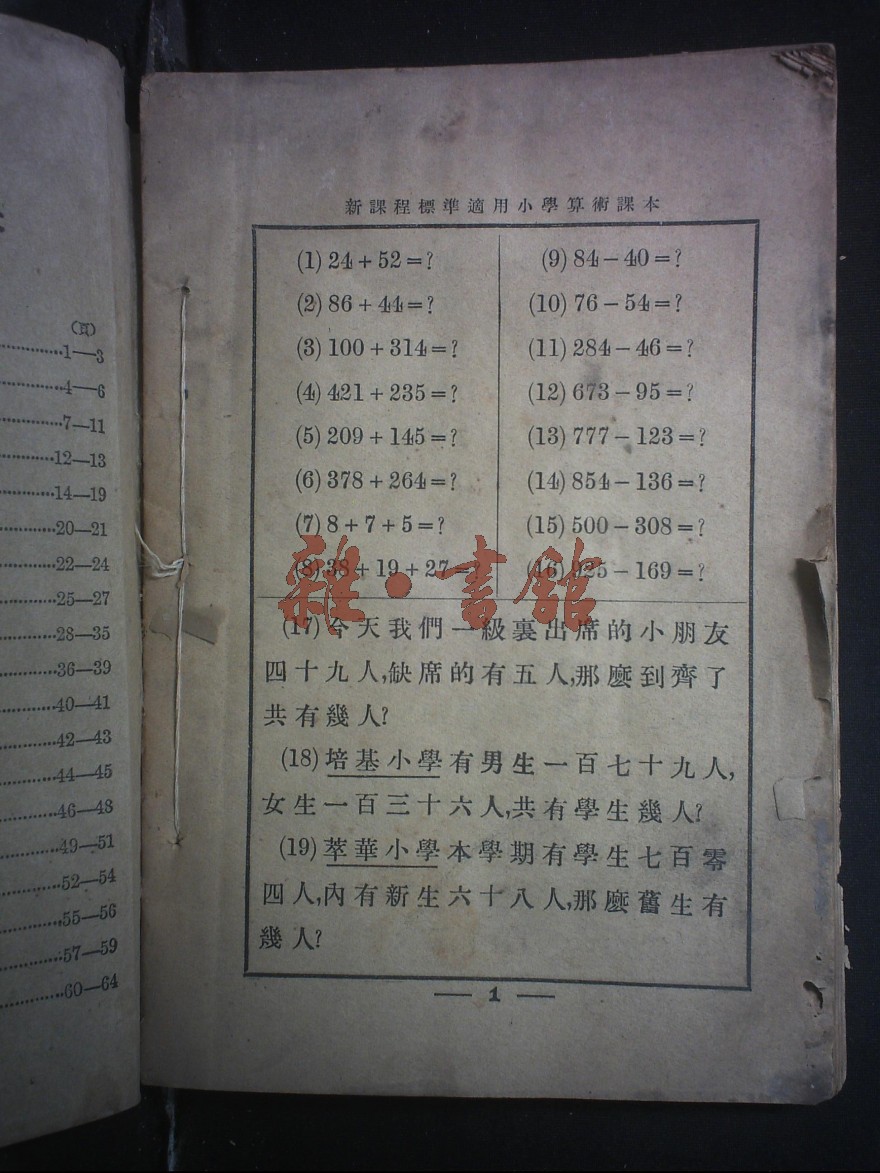 (頁)
1—3
4—6
7—11
12—13
14—19
20—21
22—24
25—27
28—35
36—39
40—41
42—43
44—45
46—48
49—51
52—54
55—56
57—59
60—64
新課程標準適用小學算術課本
(1) 24 + 52 = ?
(2) 86 + 44 = ?
(3) 100 + 314 = ?
(4) 421 + 235 = ?
(5) 209 + 145 = ?
(6) 378 + 264 = ?
(7) 8 + 7 + 5 = ?
(8) 38 + 19 + 27 = ?
(9) 84 − 40 = ?
(10) 76 − 54 = ?
(11) 284 − 46 = ?
(12) 673 − 95 = ?
(13) 777 − 123 = ?
(14) 854 − 136 = ?
(15) 500 − 308 = ?
(16) 925 − 169 = ?
雜·書館
(17) 今天我們一級裏出席的小朋友
四十九人,缺席的有五人,那麼到齊了
共有幾人?
(18) 培基小學有男生一百七十九人,
女生一百三十六人,共有學生幾人?
(19) 萃華小學本學期有學生七百零
四人,內有新生六十八人,那麼舊生有
幾人?
— 1 —